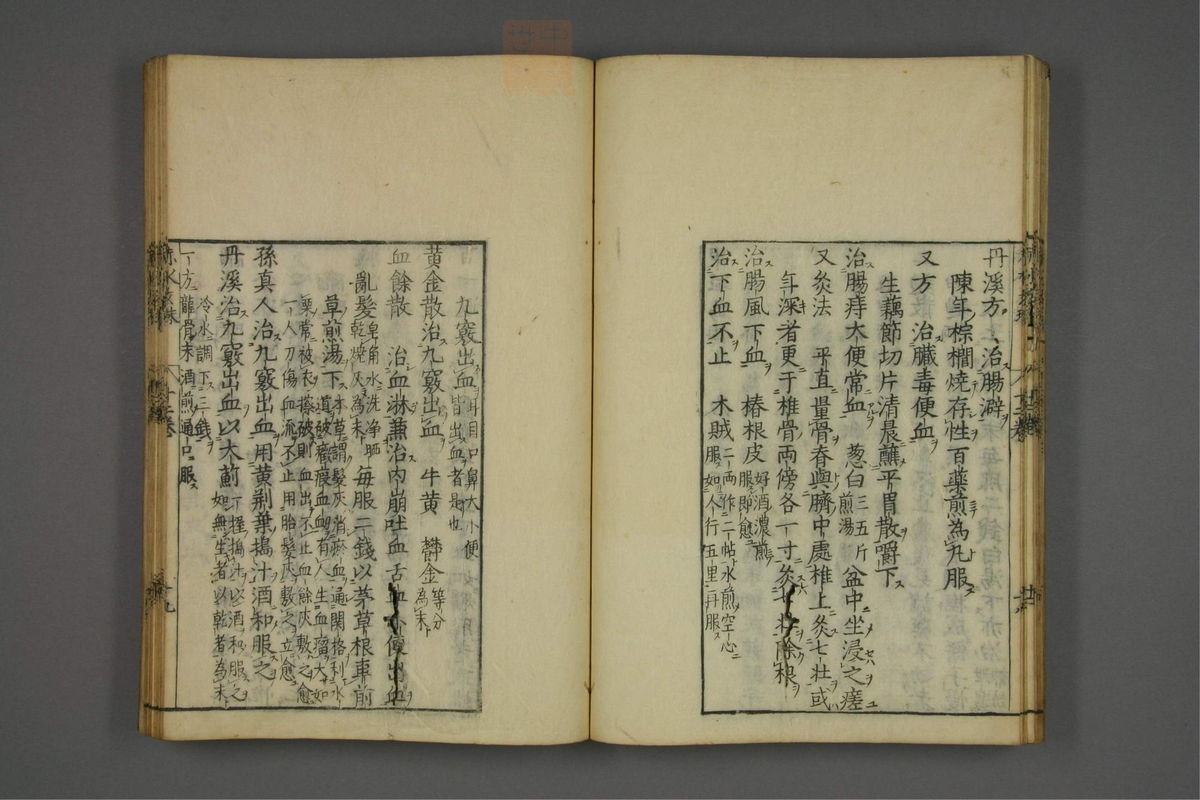 丹溪方 治腸澼
陳年棕櫚燒存性百藥煎為丸服
又方 治臟毒便血
生藕節切片清晨蘸平胃散嚼下
治腸痔大便常血 葱白三五片煎湯盆中坐浸之瘥
又灸法 平直量骨脊與臍中處椎上灸七壯或
年深者更于椎骨兩傍各一寸灸七壯除根
治腸風下血 椿根皮好酒濃煎服即愈
治下血不止 木賊二兩作二帖水煎空心服如人行五里再服
九竅出血耳目口鼻大小便皆出血者是也
黃金散治九竅出血 牛黃 欝金等分為末
血餘散 治血淋兼治內崩吐血舌血小便出血
亂髮皂角水洗淨晒乾燒灰為末每服二錢以茅草根車前
草煎湯下本草謂髮灰消瘀血通関格利水道破癥瘕血衂有人生血瘤大如
栗常被衣擦破則血出不止血餘灰敷之愈
一人刀傷血流不止用胎髮灰敷之立愈
孫真人治九竅出血用黃荆葉搗汁酒和服之
丹溪治九竅出血以大薊一握搗汁以酒和服之如無生者以乾者為末
冷水調下三錢
一方龍骨末酒煎通口服